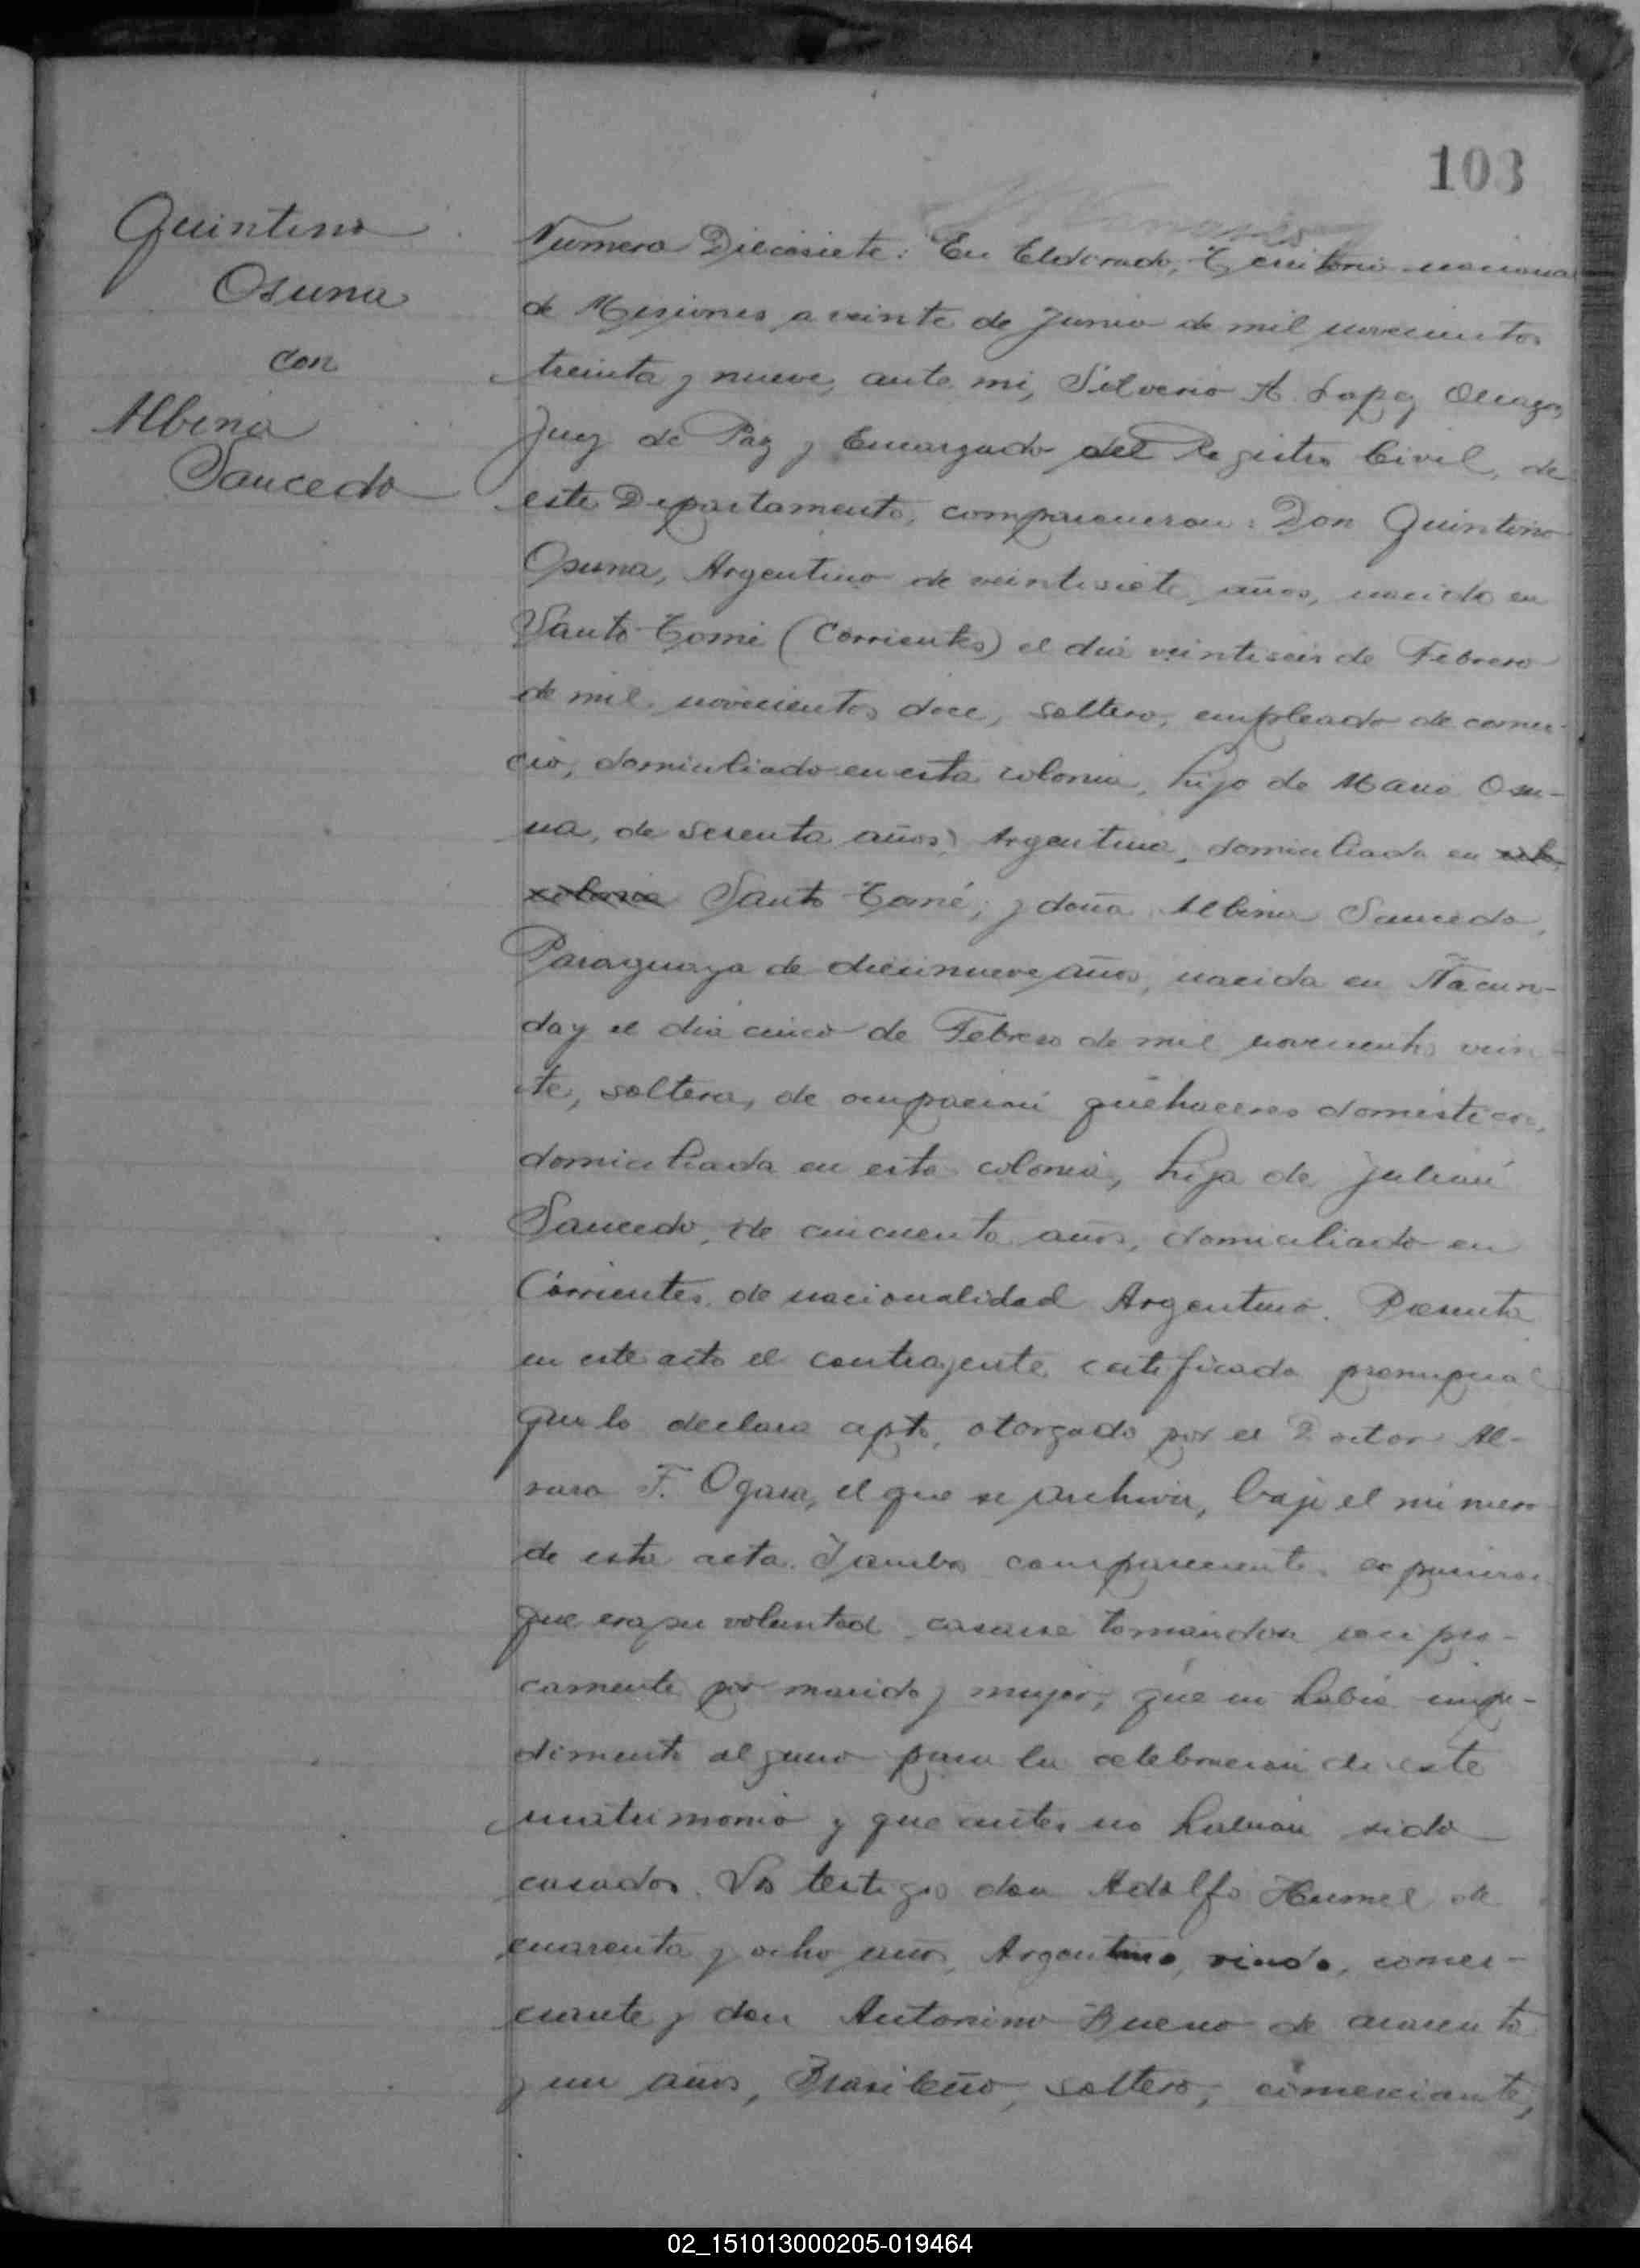 103
Quintino
Osuna
con
Albina
Saucedo
Numero Diecisiete: En Eldorado, Territorio nacional
de Misiones a veinte de Junio de mil novecientos
treinta y nueve, ante mi, Silverio A. Lopez
Juez de Paz y Encargado del Registro Civil, de
este Departamento, comparecieron: Don Quintino
Osuna, Argentino de veintisiete años, nacido en
Santo Tomé (Corrientes) el dia veintiseis de Febrero
de mil novecientos doce, soltero, empleado de comer-
cio, domiciliado en esta colonia, hijo de Osu-
na, de sesenta años, Argentina, domiciliada en esta
colonia Santo Tomé; y doña Albina Saucedo,
Paraguaya de diecinueve años, nacida en Ñacun-
day el dia cinco de Febrero de mil novecientos vein-
te, soltera, de ocupación quehaceres domesticos,
domiciliada en esta colonia, hija de Julian
Saucedo, de cincuenta años, domiciliado en
Corrientes, de nacionalidad Argentino. Presenta
en este acto el contrayente certificado prenupcial
que lo declara apto, otorgado por el Doctor Al-
varo F. Ogara, el que se archiva, bajo el número
de esta acta. Y ambos comparecientes expusieron
que era su voluntad casarse tomandose recipro-
camente por marido y mujer, que no habia impe-
dimento alguno para la celebracion de este
matrimonio y que antes no habian sido
casados. Los testigos don Adolfo Humel de
cuarenta y ocho años, Argentino, viudo, comer-
ciante y don Antonino Bueno de cuarenta
y un años, Brasileño, soltero, comerciante,
02_151013000205-019464